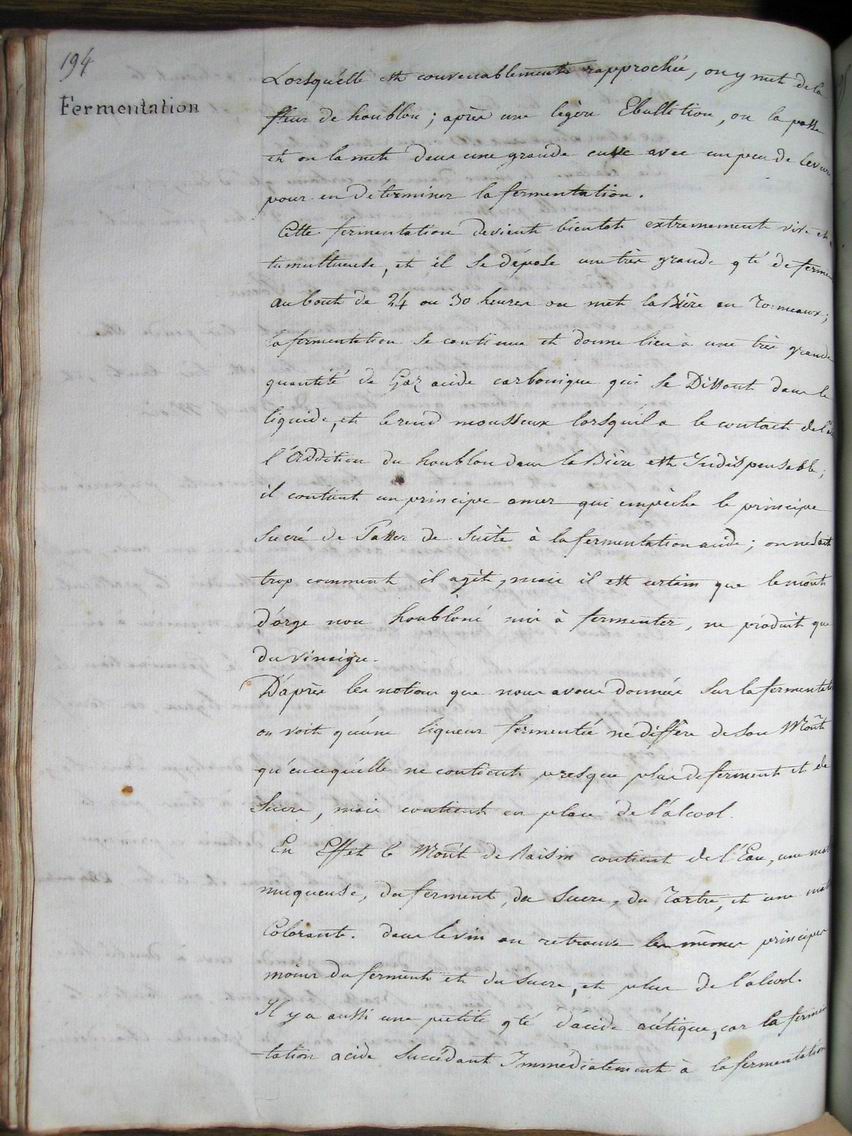 194
Fermentation
Lorsquélle est convenablement rapprochée, on y met de la
fleur de houblon ; après une légère Ebullition, on la passe
et on la met dans une grande cuve avec un peu de levure
pour en déterminer la fermentation.
Cette fermentation devient bientot extremement vive et
tumultueuse, et il se dépose une très grande q.té de ferment
au bout de 24 ou 30 heures on met la Bière en Tonneaux ;
la fermentation se continue et donne lieu à une très grande
quantité de Gaz acide carbonique qui se Dissout dans le
liquide, et le rend mousseux lorsquil a le contact de l'air
l'Addition du houblon dans la Bière est Indispensable ;
il contient un principe amer qui empêche le principe
Sucré de Passer de Suite à la fermentation acide ; on ne sait
trop comment il agit, mais il est certain que le moût
d'orge non houbloné mis à fermenter, ne produit que
du vinaigre.
D'après les notions que nous avons données sur la fermentation
on voit qu'une liqueur fermentée ne diffère de son Moût
qu'en ce qu'elle ne contient presque plus de ferment et de
Sucre, mais contient en place de l'alcool.
En Effet le Moût de Raisin contient de l'Eau, une mat
muqueuse, du ferment, du Sucre, du Tartre, et une mat
Colorante. dans le vin on retrouve les mêmes principes
moins du ferment et du Sucre, et plus de l'alcool.
Il y a aussi une petite q.té d'acide acétique, car la fermen
-tation acide Succédant Immédiatement à la fermentation